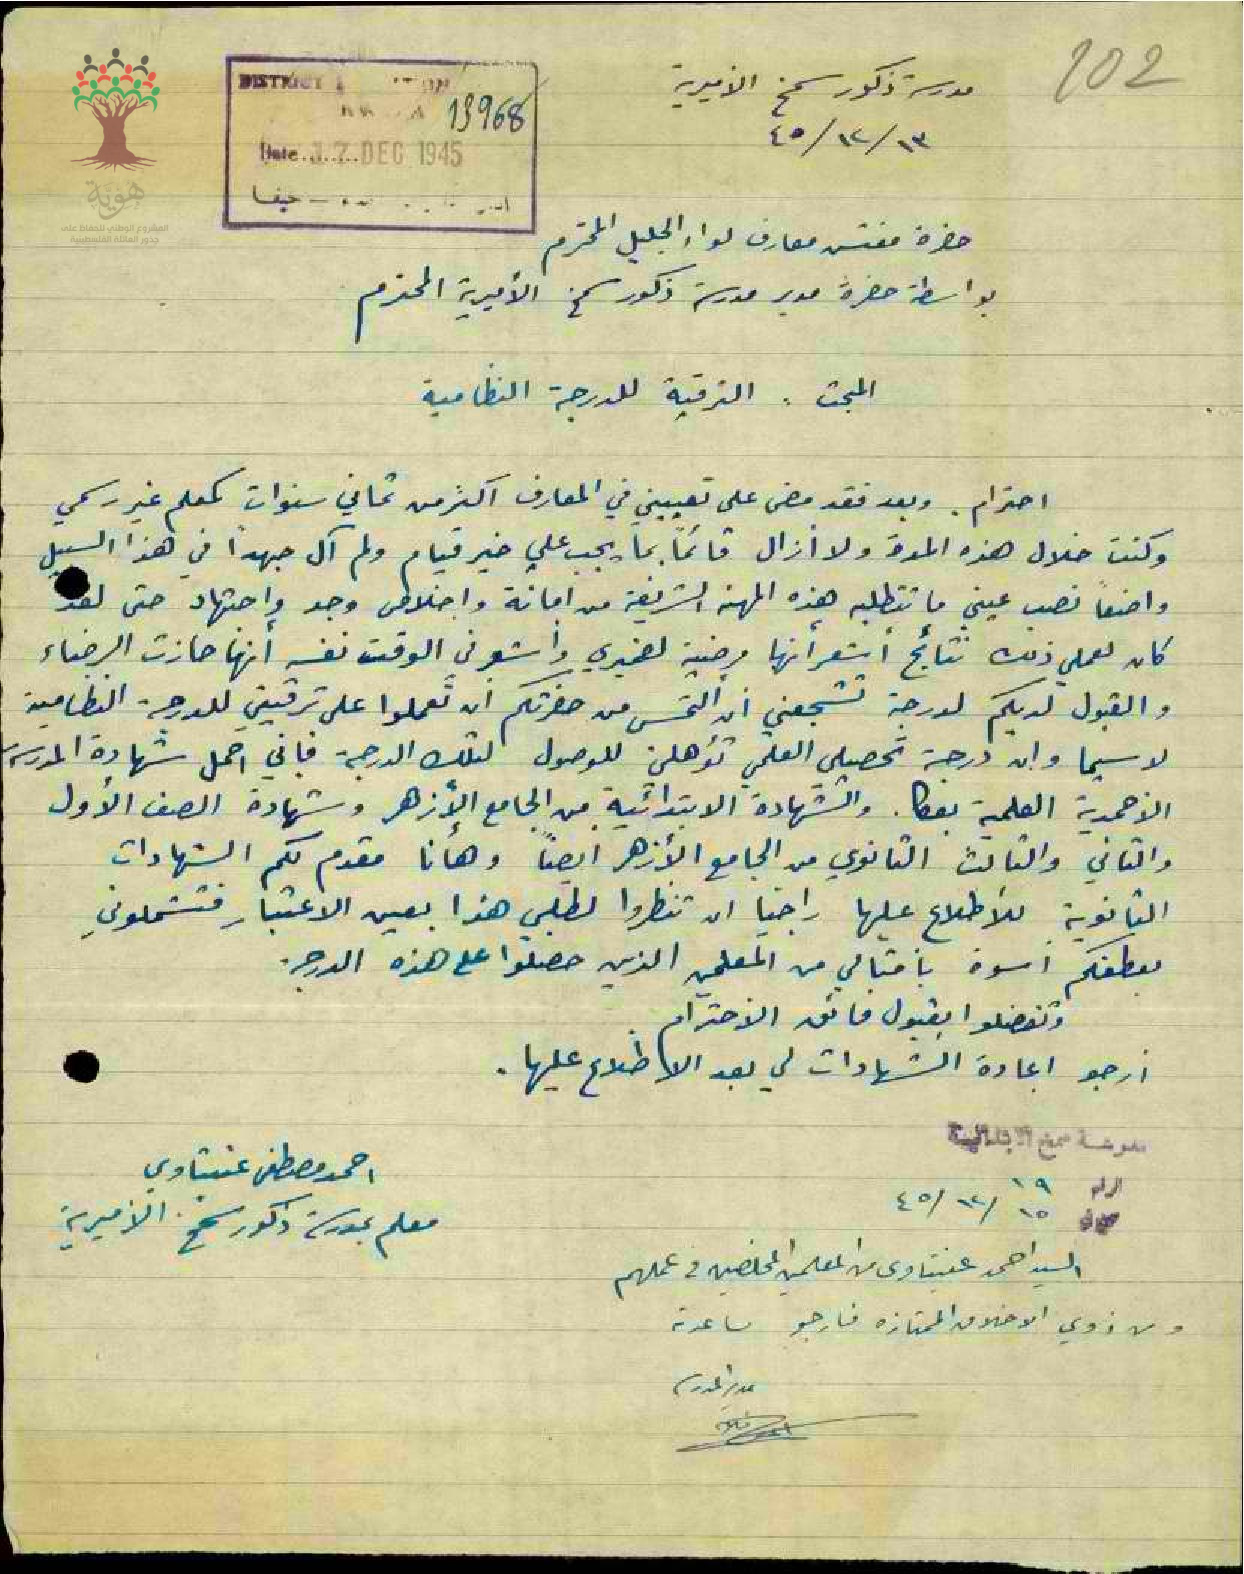 102
مدرسة ذكور سمخ الأميرية
١٣/١٢/٤٥
DISTRICT
13968
Date 17 DEC 1945
حيفا
هوية
المشروع الوطني للحفاظ على
جذور العائلة الفلسطينية
حضرة مفتش معارف لواء الجليل المحترم
بواسطة حضرة مدير مدرسة ذكور سمخ الأميرية المحترم
المبحث . الترقية للدرجة النظامية
احترام . وبعد فقد مضى على تعييني في المعارف اكثر من ثماني سنوات كمعلم غير رسمي
وكنت خلال هذه المدة ولا أزال قائماً بما يجب علي خير قيام ولم آل جهداً في هذا السبيل
واضعاً نصب عيني ما تتطلبه هذه المهنة الشريفة من امانة واخلاص وجد واجتهاد حتى لقد
كان لعملي ذلك نتائج أشعر أنها مرضية لضميري وأشعر في الوقت نفسه أنها حازت الرضاء
والقبول لديكم لدرجة تشجعني أن التمس من حضرتكم ان تعملوا على ترقيتي للدرجة النظامية
لا سيما وان درجة تحصيلي العلمي تؤهلني للوصول لتلك الدرجة فاني احمل شهادة المدرسة
الأحمدية العلمية بعكا . والشهادة الابتدائية من الجامع الأزهر وشهادة الصف الأول
والثاني والثالث الثانوي من الجامع الأزهر أيضاً وهأنا مقدم لكم الشهادات
الثانوية للأطلاع عليها راجيا ان تنظروا لطلبي هذا بعين الاعتبار فتشملوني
بعطفكم أسوة بأمثالي من المعلمين الذين حصلوا على هذه الدرجة .
وتفضلوا بقبول فائق الاحترام .
أرجو اعادة الشهادات لي بعد الاطلاع عليها .
احمد مصطفى عنبتاوي
معلم بمدرسة ذكور سمخ الأميرية
مدرسة سمخ الابتدائية
الرقم ١٩
١٥/١٢/٤٥
السيد احمد عنبتاوي من المعلمين المخلصين في عملهم
ومن ذوي الاخلاق الممتازه فارجو مساعدته
مدير المدرسة